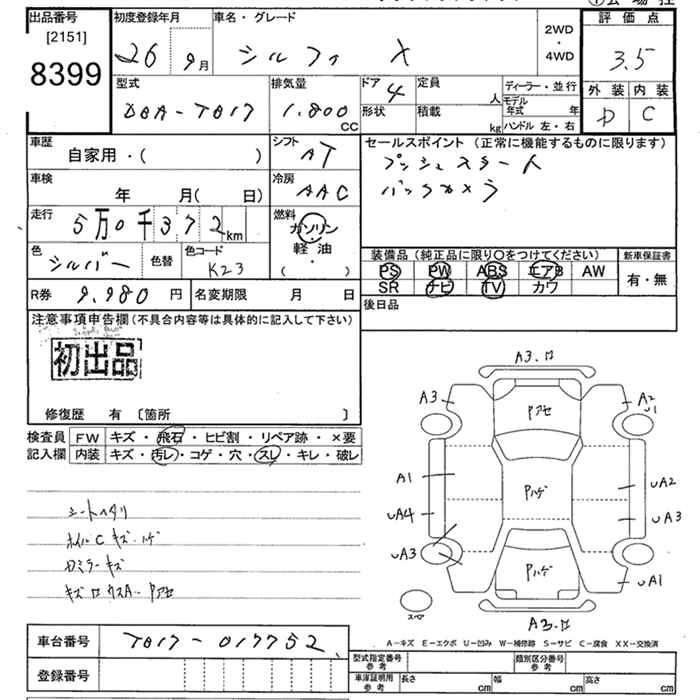 出品番号
[2151]
8399
初度登録年月
26 9月
車名・グレード
シルフィ X
2WD
・
4WD
評価点
3.5
外装 内装
D C
型式
DBA-TB17
排気量
1.800
CC
ドア
4
形状
定員
人
積載
kg
ディーラー・並行
モデル年式 年
ハンドル 左・右
車歴
自家用・( )
シフト
AT
セールスポイント(正常に機能するものに限ります)
プッシュスタート
バックカメラ
車検
年 月( 日)
冷房
AAC
走行
5万0千372km
燃料
ガソリン
・
軽・油
( )
色
シルバー
色替
色コード
K23
装備品(純正品に限り○をつけてください)
新車保証書
PS PW ABS エアB AW
SR ナビ TV カワ
有・無
R券
9.980 円
名変期限 月 日
後日品
注意事項申告欄(不具合内容等は具体的に記入して下さい)
初出品
修復歴 有〔箇所 〕
検査員
記入欄
FW キズ・飛石・ヒビ割・リペア跡・×要
内装 キズ・汚レ・コゲ・穴・スレ・キレ・破レ
シートヘタリ
ホイルC キズ・ハゲ
ロミラーキズ
A3.ロ
A3
A2
U1
Pアセ
A1
UA2
Pハゲ
UA4
UA3
UA3
Pハゲ
UA1
スペア
A3.ロ
A-キズ E-エクボ U-凹み W-補修跡 S-サビ C-腐食 XX-交換済
車台番号
TB17-017752
登録番号
型式指定番号
参考
類別区分番号
参考
車庫証明用
参考
長さ cm
幅 cm
高さ cm